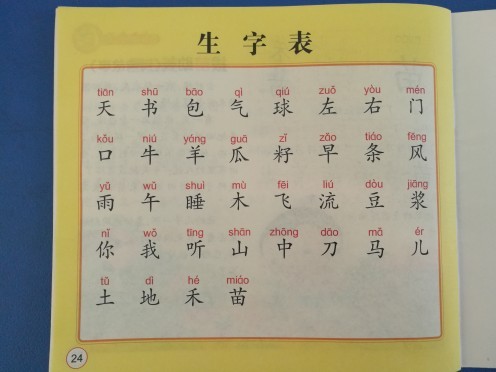 生字表
tiān shū bāo qì qiú zuǒ yòu mén
天 书 包 气 球 左 右 门
kǒu niú yáng guā zǐ zǎo tiáo fēng
口 牛 羊 瓜 籽 早 条 风
yǔ wǔ shuì mù fēi liú dòu jiāng
雨 午 睡 木 飞 流 豆 浆
nǐ wǒ tīng shān zhōng dāo mǎ ér
你 我 听 山 中 刀 马 儿
tǔ dì hé miáo
土 地 禾 苗
24